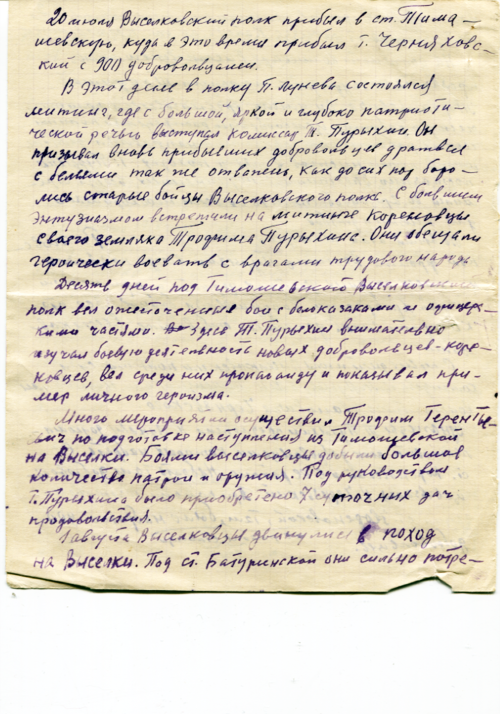 20 июля Выселковский полк прибыл в ст. Тима-
шевскую, куда в это время прибыл т. Черняховс-
кий с 900 добровольцами.
В этот день в полку П. Лунева состоялся
митинг, где с большой, яркой и глубоко патриоти-
ческой речью выступал комиссар Т. Пурыхин. Он
призывал вновь прибывших добровольцев драться
с белыми так же отважно, как до сих пор боро-
лись старые бойцы Выселковского полка. С большим
энтузиазмом встретили на митинге кореновцы
своего земляка Трофима Пурыхина. Они обещали
героически воевать с врагами трудового народа
Десять дней под Тимошевской Выселковский
полк вел ожесточенные бои с белоказаками и офицерс-
кими частями. Здесь Т. Пурыхин внимательно
изучал боевую деятельность новых добровольцев-коре-
новцев, вел среди них пропаганду и показывал при-
мер личного героизма.
Много мероприятий осуществил Трофим Теренть-
евич по подготовке наступления из Тимошевской
на Выселки. Боями выселковцы добыли большое
количество патрон и оружия. Под руководством
Т. Пурыхина было приобретено 7 суточных дач
продовольствия.
1 августа Выселковцы двинулись в поход
на Выселки. Под ст. Батуринской они сильно потре-